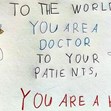 TO THE WORLD
YOU ARE A
DOCTOR
TO YOUR
PATIENTS,
YOU ARE A